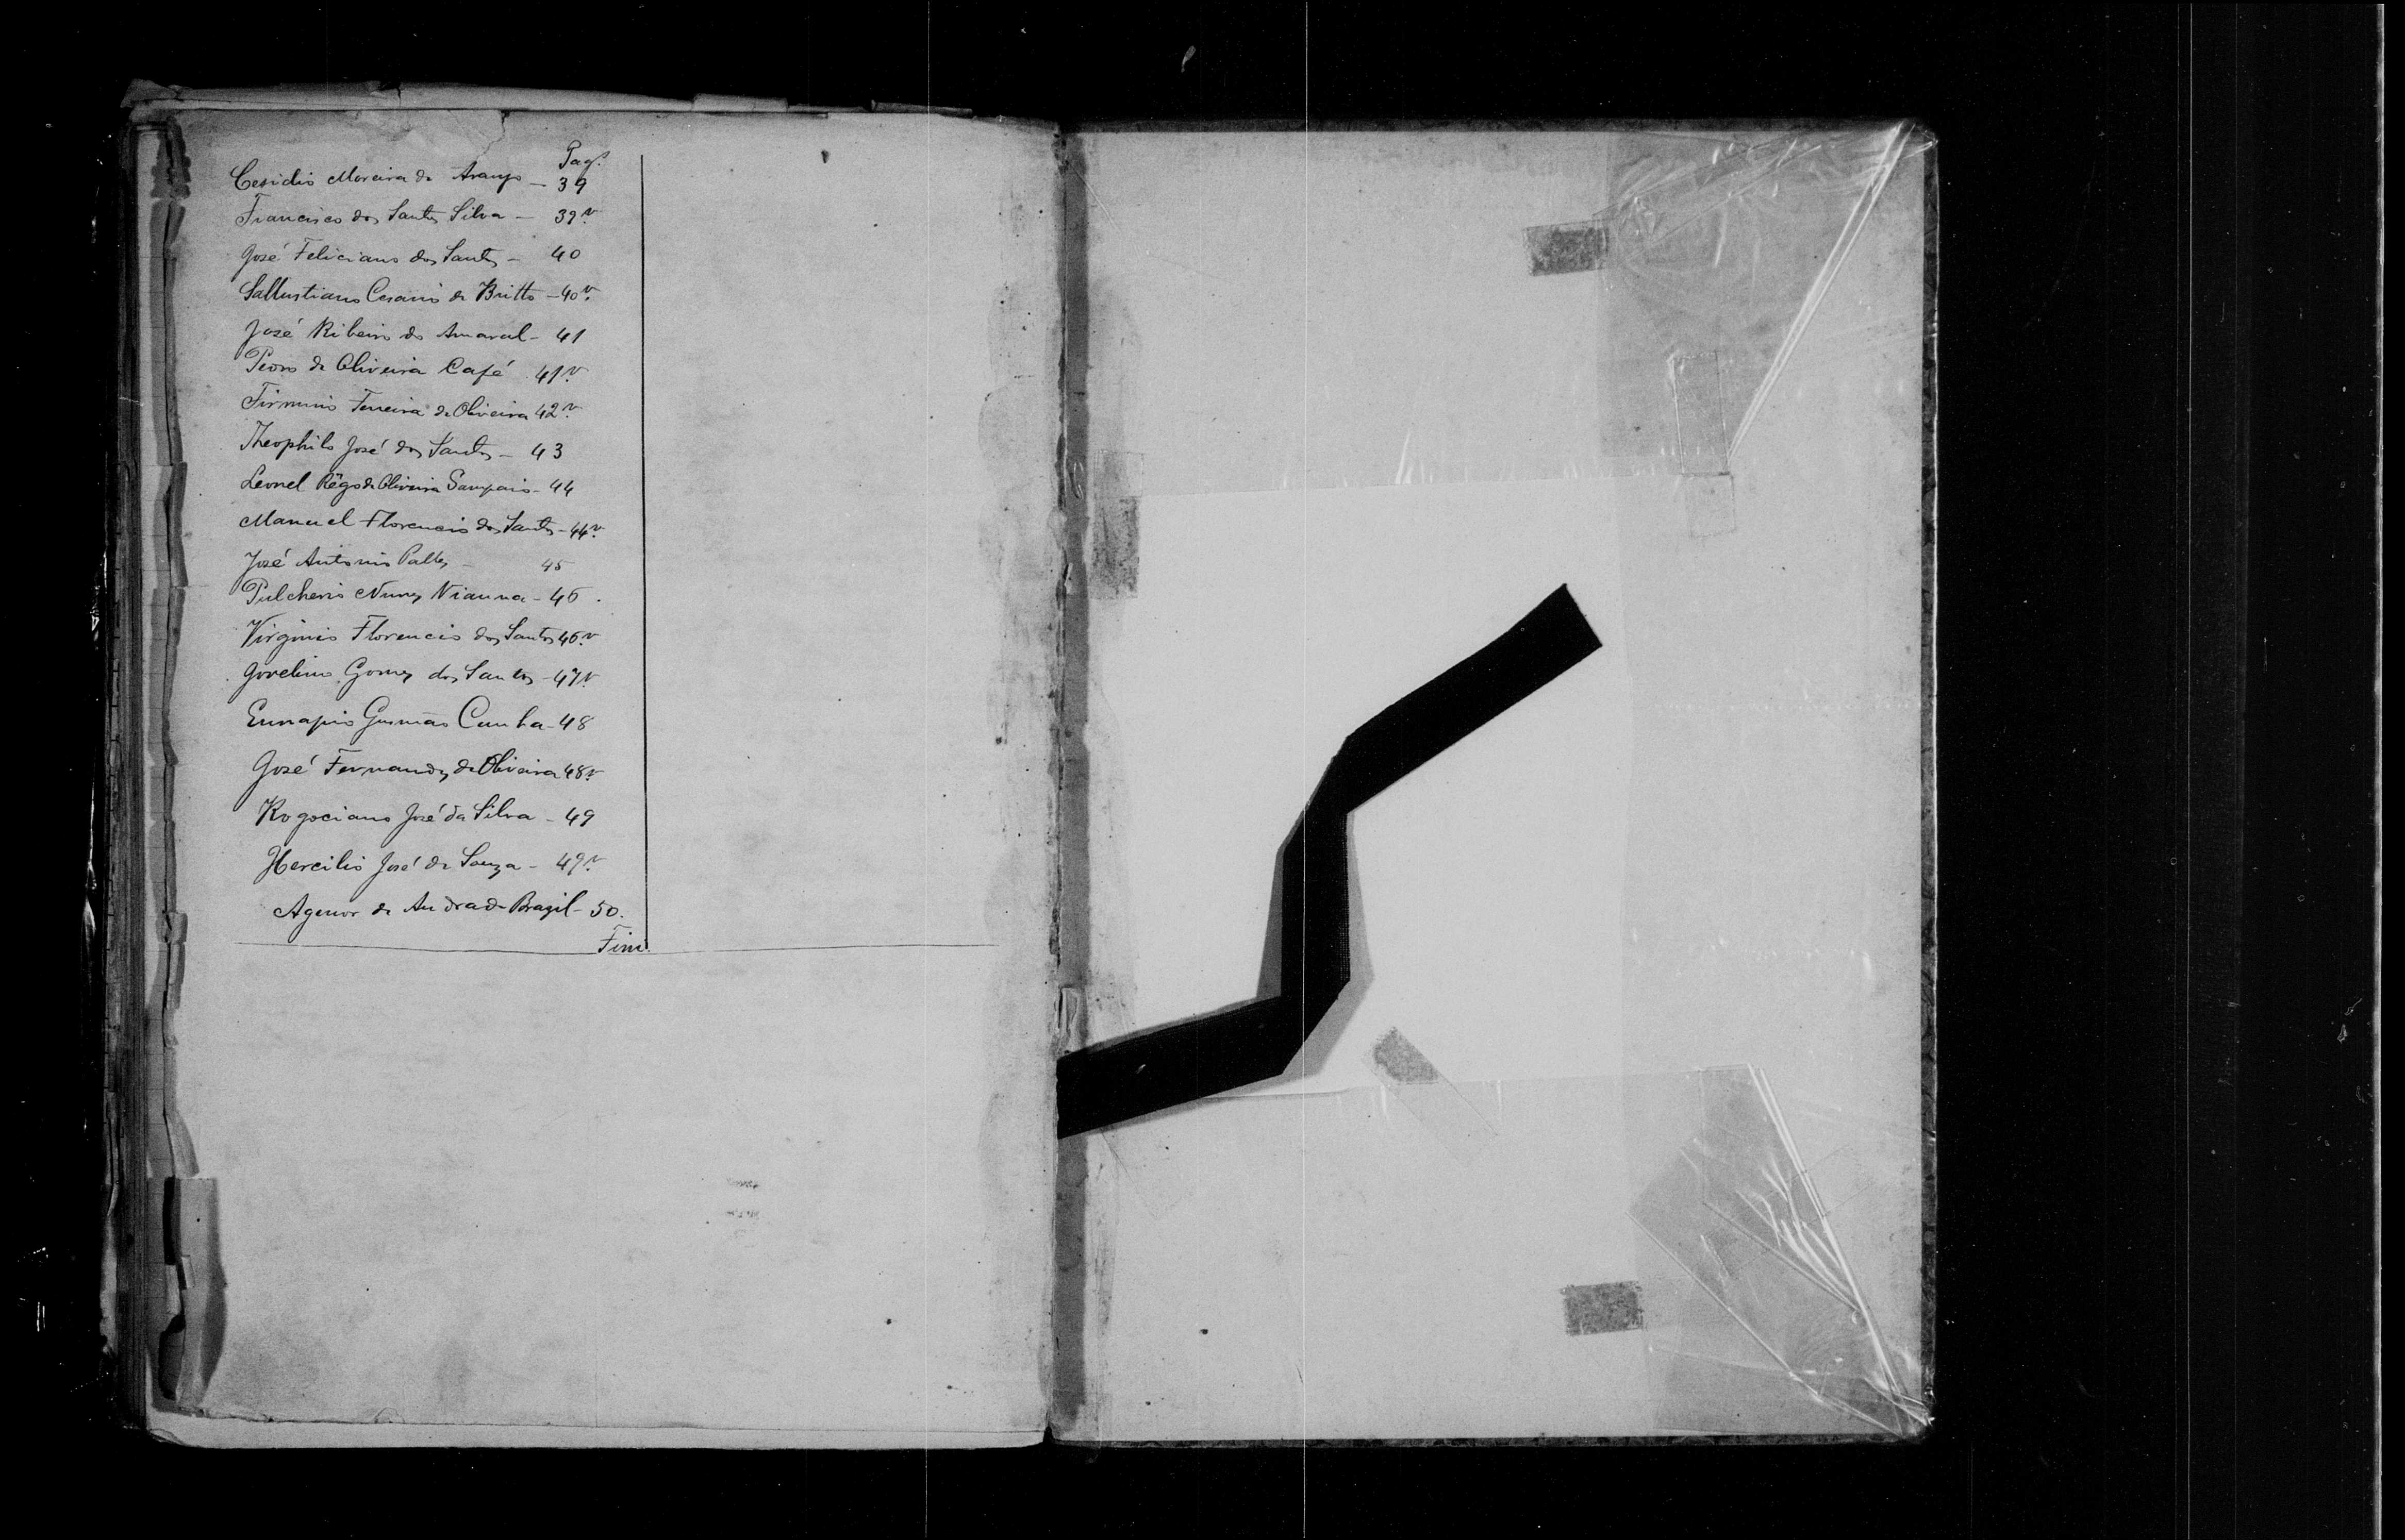 Pag.
Cesidio Moreira de Araujo — 39
Francisco dos Santos Silva — 39v.
José Feliciano dos Santos — 40
Sallustiano Cesario de Britto — 40v.
José Ribeiro do Amaral — 41
Pedro de Oliveira Café 41v.
Firmino Ferreira de Oliveira 42v.
Theophilo José dos Santos — 43
Leonel Rêgo de Oliveira Sampaio — 44
Manuel Florencio dos Santos — 44v.
José Antonio — 45
Pulcherio Nunes Vianna — 46.
Virginio Florencio dos Santos 46v.
Jovelino Gomes dos Santos — 47v.
Eunapio Gusmão Cunha — 48
José Fernandes de Oliveira 48v.
Rogociano José da Silva — 49
Hercilio José de Souza — 49v.
Agenor de Andrade Brazil — 50.
Fim.